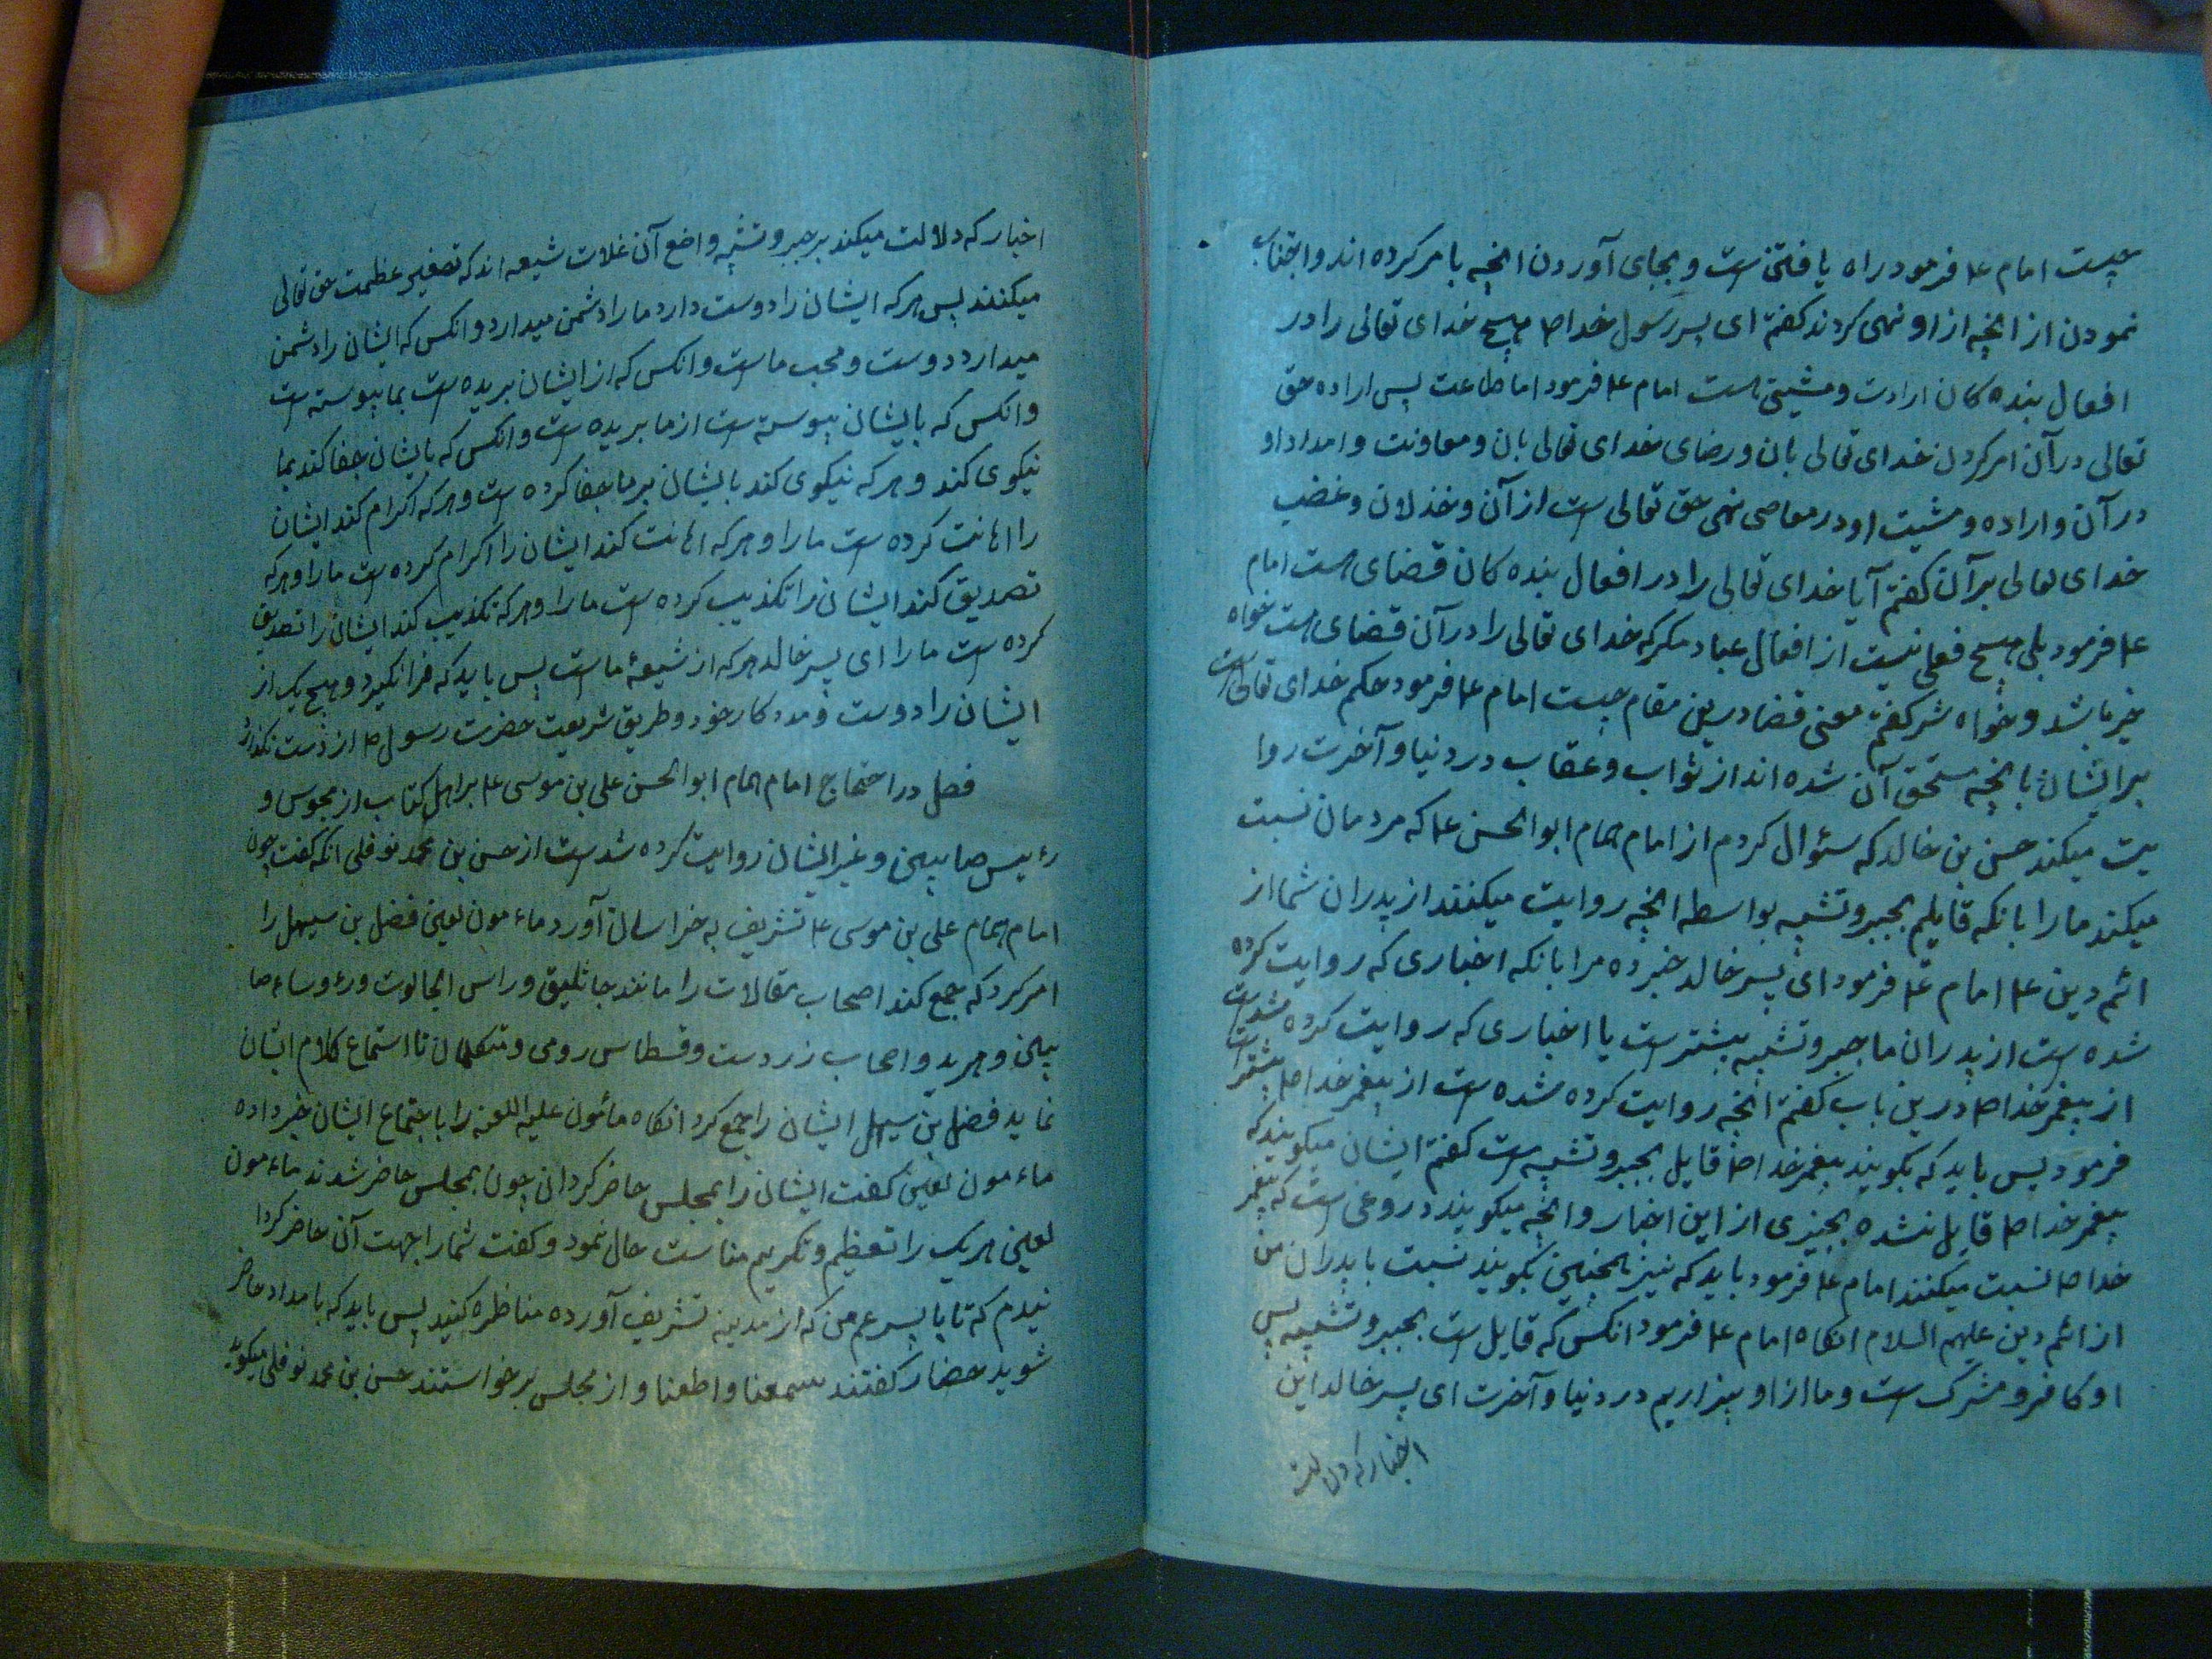 چیست امام ع‍ فرمود راه یافتن است و بجای آوردن انچه بامر کرده اند و اجتناب
نمودن از انچه از او نهی کردند کفتم ای پسر رسول خدا ص‍ هیچ خدای تعالی را در
افعال بنده کان ارادت و مشیتی هست امام ع‍ فرمود اما طاعت پس اراده حق
تعالی در آن امر کردن خدای تعالی بان و رضای خدای تعالی بان و معاونت و امداد او
در آن و اراده و مشیت او در معاصی نهی حق تعالی است از آن و خذلان و غضب
خدای تعالی بر آن کفتم آیا خدای تعالی را در افعال بنده کان قضای هست امام
ع‍ فرمود بلی هیچ فعلی نیست از افعال عباد مکر که خدای تعالی را در آن قضای هست خواه
خیر باشد و خواه شر کفتم معنی قضا درین مقام چیست امام ع‍ فرمود حکم خدای تعالی است
بر ایشان بانچه مستحق آن شده اند از ثواب و عقاب در دنیا و آخرت روا
یت میکند حسن بن خالد که سئوال کردم از امام همام ابوالحسن ع‍ که مردمان نسبت
میکند ما را بانکه قایلیم بجبر و تشبیه بواسطه انچه روایت میکنند از پدران شما از
ائمه دین ع‍ امام ع‍ فرمود ای پسر خالد خبر ده مرا بانکه اخباری که روایت کرده
شده است از پدران ما جبر و تشبیه بیشتر است یا اخباری که روایت کرده شده است
از پیغمبر خدا ص‍ درین باب کفتم انچه روایت کرده شده است از پیغمبر خدا ص‍ بیشتر است
فرمود پس باید که بکویند پیغمبر خدا ص‍ قایل بجبر و تشبیه است کفتم ایشان میکویند که
پیغمبر خدا ص‍ قایل نشده بچیزی از این اخبار و انچه میکویند دروغی است که پیغمبر
خدا ص‍ نسبت میکنند امام ع‍ فرمود باید که نیز همچنین بکویند نسبت با پدران من
از ائمه دین علیهم السلام انکاه امام ع‍ فرمود انکس که قایل است بجبر و تشبیه پس
او کافر و مشرک است و ما از او بیزاریم در دنیا و آخرت ای پسر خالد این
اخبار که دلالت
اخبار که دلالت میکند بر جبر و تشبیه واضع آن غلات شیعه اند که تصغیر عظمت حق تعالی
میکنند پس هر که ایشان را دوست دارد ما را دشمن میدارد و انکس که ایشان را دشمن
میدارد دوست و محب ما است و انکس که از ایشان بریده است بما پیوسته است
و انکس که بایشان پیوسته است از ما بریده است و انکس که بایشان جفا کند بما
نیکوی کند و هر که نیکوی کند بایشان بر ما جفا کرده است و هر که اکرام کند ایشان
را اهانت کرده است ما را و هر که اهانت کند ایشان را اکرام کرده است ما را و هر که
تصدیق کند ایشان را تکذیب کرده است ما را و هر که تکذیب کند ایشان را تصدیق
کرده است ما را ای پسر خالد هر که از شیعهٔ ما است پس باید که فرا نکیرد و هیچ یک از
ایشان را دوست و مدد کار خود و طریق شریعت حضرت رسول ص‍ از دست نکذارد
فصل در احتجاج امام همام ابوالحسن علی بن موسی ع‍ بر اهل کتاب از مجوس و
رءیس صابیین و غیر ایشان روایت کرده شد است از حسن بن محمد نوفلی انکه کفت چون
امام همام علی بن موسی ع‍ تشریف به خراسان آورد ماءمون لعین فضل بن سهل را
امر کرد که جمع کند اصحاب مقالات را مانند جاثلیق و راس الجالوت و رءوساء صا
بیین و هربد و اصحاب زردست و قسطاس رومی و متکلمان تا استماع کلام ایشان
نماید فضل بن سهل ایشان را جمع کرد انکاه مائمون علیه اللعنه را باجتماع ایشان خبر داده
ماءمون لعین کفت ایشان را بمجلس حاضر کردان چون بمجلس حاضر شدند ماءمون
لعین هر یک را تعظیم و تکریم مناسب حال نمود و کفت شما را جهت آن حاضر کردا
نیدم که تا با پسر عم من که از مدینه تشریف آورده مناظره کنید پس باید که بامداد حاضر
شوید حضار کفتند سمعنا و اطعنا و از مجلس برخواستند حسن بن محمد نوفلی میکوید